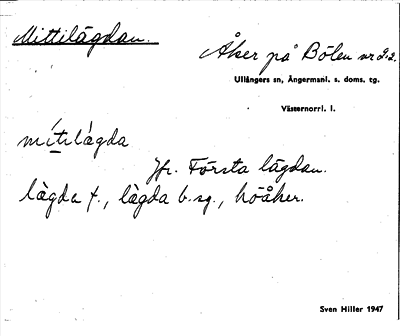 Mittilägdan.
Åker på Bölen nr 2:2.
Ullångers sn, Ångermanl. s. doms. tg.
Västernorrl. l.
mítılàgda
Jfr. Första lägdan.
làgda f., làgda b.sg., höåker.
Sven Hiller 1947